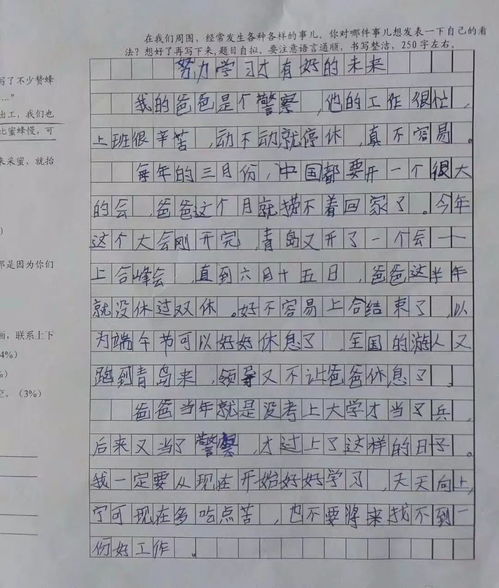 在我们周围，经常发生各种各样的事儿。你对哪件事儿想发表一下自己的看
法？想好了再写下来，题目自拟。要注意语言通顺，书写整洁，250字左右。
努力学习才有好的未来
我的爸爸是个警察，他的工作很忙，
上班很辛苦，动不动就停休，真不容易。
每年的三月份，中国都要开一个很大
的会，爸爸这个月就捞不着回家了。今年
这个大会刚开完，青岛又开了一个会——
上合峰会，直到六月十五日，爸爸这半年
就没休过双休。好不容易上合结束了，以
为端午节可以好好休息了，全国的游人又
跑到青岛来，领导又不让爸爸休息了。
爸爸当年就是没考上大学才当了兵，
后来又当了警察，才过上了这样的日子。
我一定要从现在开始好好学习，天天向上，
宁可现在多吃点苦，也不要将来找不到一
份好工作。
写了不少赞蜂
出工，我们也
比蜜蜂慢，可
来采蜜，就抬
那是因为你们
画，联系上下
4%）
%）
空。（3%）